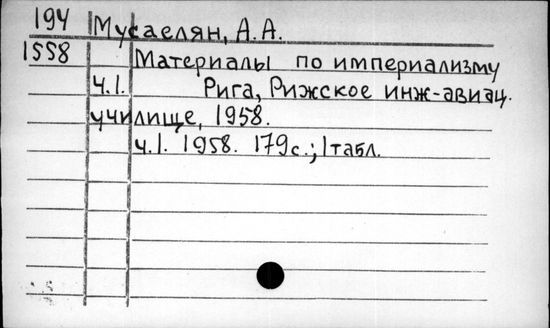 194 Мусаелян, А.А.
1558 Материалы по империализму
ч.1. Рига, Рижское инж-авиац.
училище, 1958.
ч.1. 1958. 179с.; 1табл.